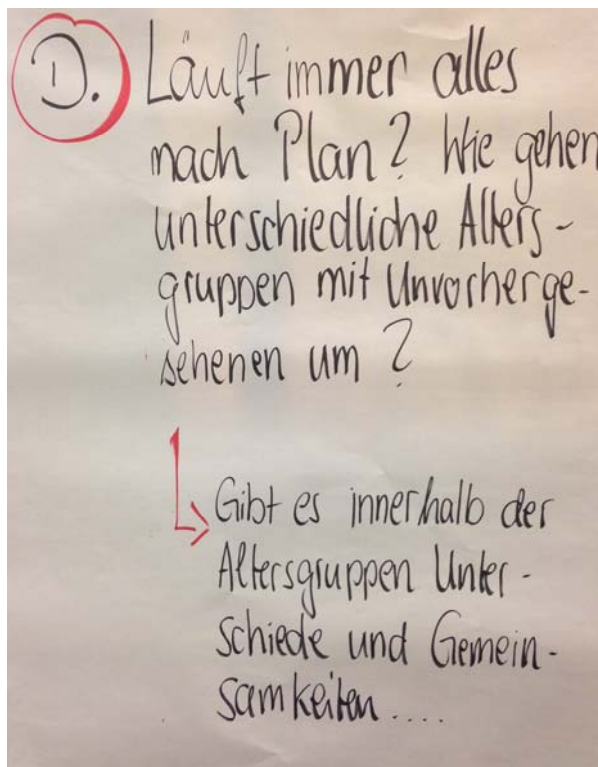 D. Läuft immer alles
nach Plan? Wie gehen
unterschiedliche Alters-
gruppen mit Unvorherge-
sehenen um?
Gibt es innerhalb der
Altersgruppen Unter-
schiede und Gemein-
samkeiten....